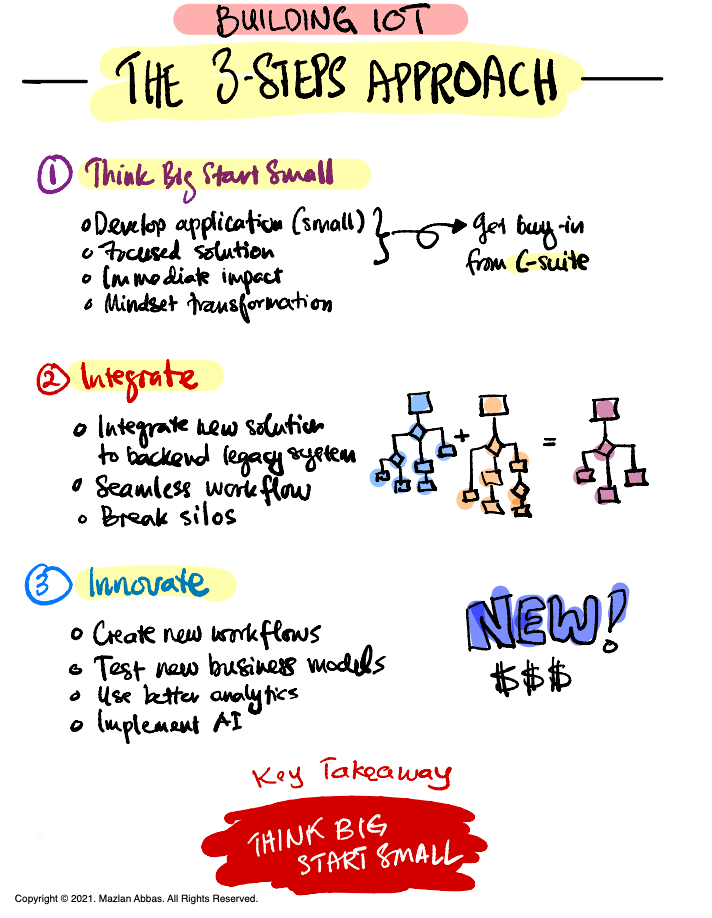 BUILDING IOT
THE 3-STEPS APPROACH
1 Think Big Start Small
Develop application (small)
Focused solution
Immediate impact
Mindset transformation
Get buy-in
from C-suite
2 Integrate
Integrate new solution
to backend legacy system
Seamless workflow
Break silos
+ =
3 Innovate
Create new workflows
Test new business models
Use better analytics
Implement AI
NEW!
$$$
Key Takeaway
THINK BIG
START SMALL
Copyright © 2021. Mazlan Abbas. All Rights Reserved.